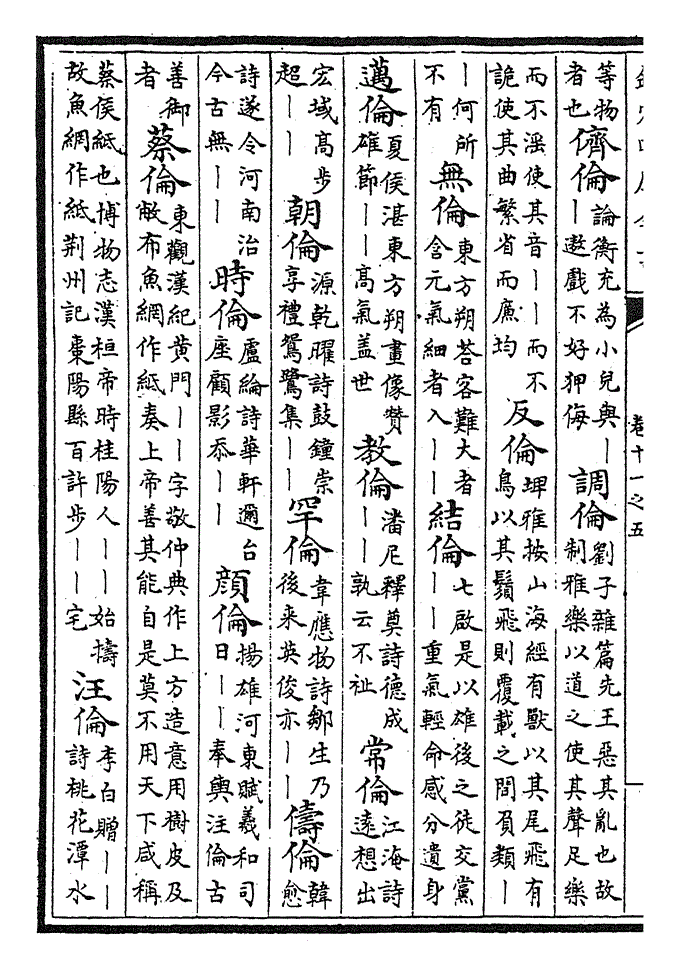 卷十一之五
等物者也儕倫論衡充為小兒與丨丨遨戲不好狎侮調倫劉子雜篇先王惡其亂也故制雅樂以道之使其聲足樂
而不滛使其音丨丨而不詭使其曲繁省而廉均反倫埤雅按山海經有獸以其尾飛有鳥以其鬚飛則覆載之間負類丨
丨何所不有無倫東方朔荅客難大者含元氣細者入丨丨結倫七啟是以雄後之徒交黨丨丨重氣輕命感分遺身
邁倫夏侯湛東方朔畫像贊雄節丨丨高氣盖世教倫潘尼釋奠詩德成丨丨孰云不祉常倫江淹詩遠想出
宏域高步超丨丨朝倫源乾曜詩鼓鐘崇享禮鴛鷺集丨丨罕倫韋應物詩鄒生乃後来英俊亦丨丨儔倫韓愈
詩遂令河南治今古無丨丨時倫盧綸詩華軒邇台座顧影忝丨丨顔倫揚雄河東賦羲和司日丨丨奉輿注倫古
善御者蔡倫東觀漢紀黄門丨丨字敬仲典作上方造意用樹皮及敝布魚網作紙奏上帝善其能自是莫不用天下咸稱
蔡侯紙也博物志漢桓帝時桂陽人丨丨始擣故魚網作紙荆州記棗陽縣百許步丨丨宅汪倫李白贈丨丨詩桃花潭水